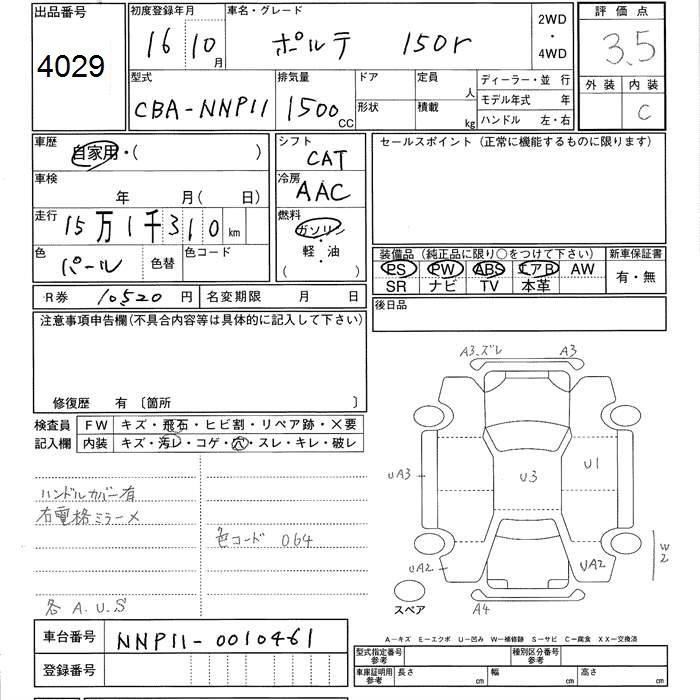 出品番号
4029
初度登録年月
16 10 月
車名・グレード
ポルテ 150r
2WD
・
4WD
評価点
3.5
型式
CBA-NNP11
排気量
1500 CC
ドア
形状
定員
人
積載
kg
ディーラー・並 行
モデル年式 年
ハンドル 左・右
外装 内装
C
車歴
自家用・( )
車検
年 月( 日)
走行
15万1千310 km
色
パール
色替
色コード
シフト
CAT
冷房
AAC
燃料
ガソリン
・
軽・油
・
( )
セールスポイント(正常に機能するものに限ります)
装備品(純正品に限り○をつけて下さい)
PS PW ABS エアB AW
SR ナビ TV 本革
新車保証書
有・無
R券 10520 円
名変期限 月 日
後日品
注意事項申告欄(不具合内容等は具体的に記入して下さい)
修復歴 有 〔箇所 〕
検査員
記入欄
FW キズ・飛石・ヒビ割・リペア跡・X要
内装 キズ・汚レ・コゲ・穴・スレ・キレ・破レ
ハンドルカバー有
右電格ミラーメ
色コード 064
各 A.U.S
A3.ズレ A3
UA3
U3
U1
UA2
UA2
W2
A4
スペア
車台番号
NNP11-0010461
登録番号
A-キズ E-エクボ U-凹み W-補修跡 S-サビ C-腐食 XX-交換済
型式指定番号
参考
種別区分番号
参考
車庫証明用
参考
長さ cm
幅 cm
高さ cm